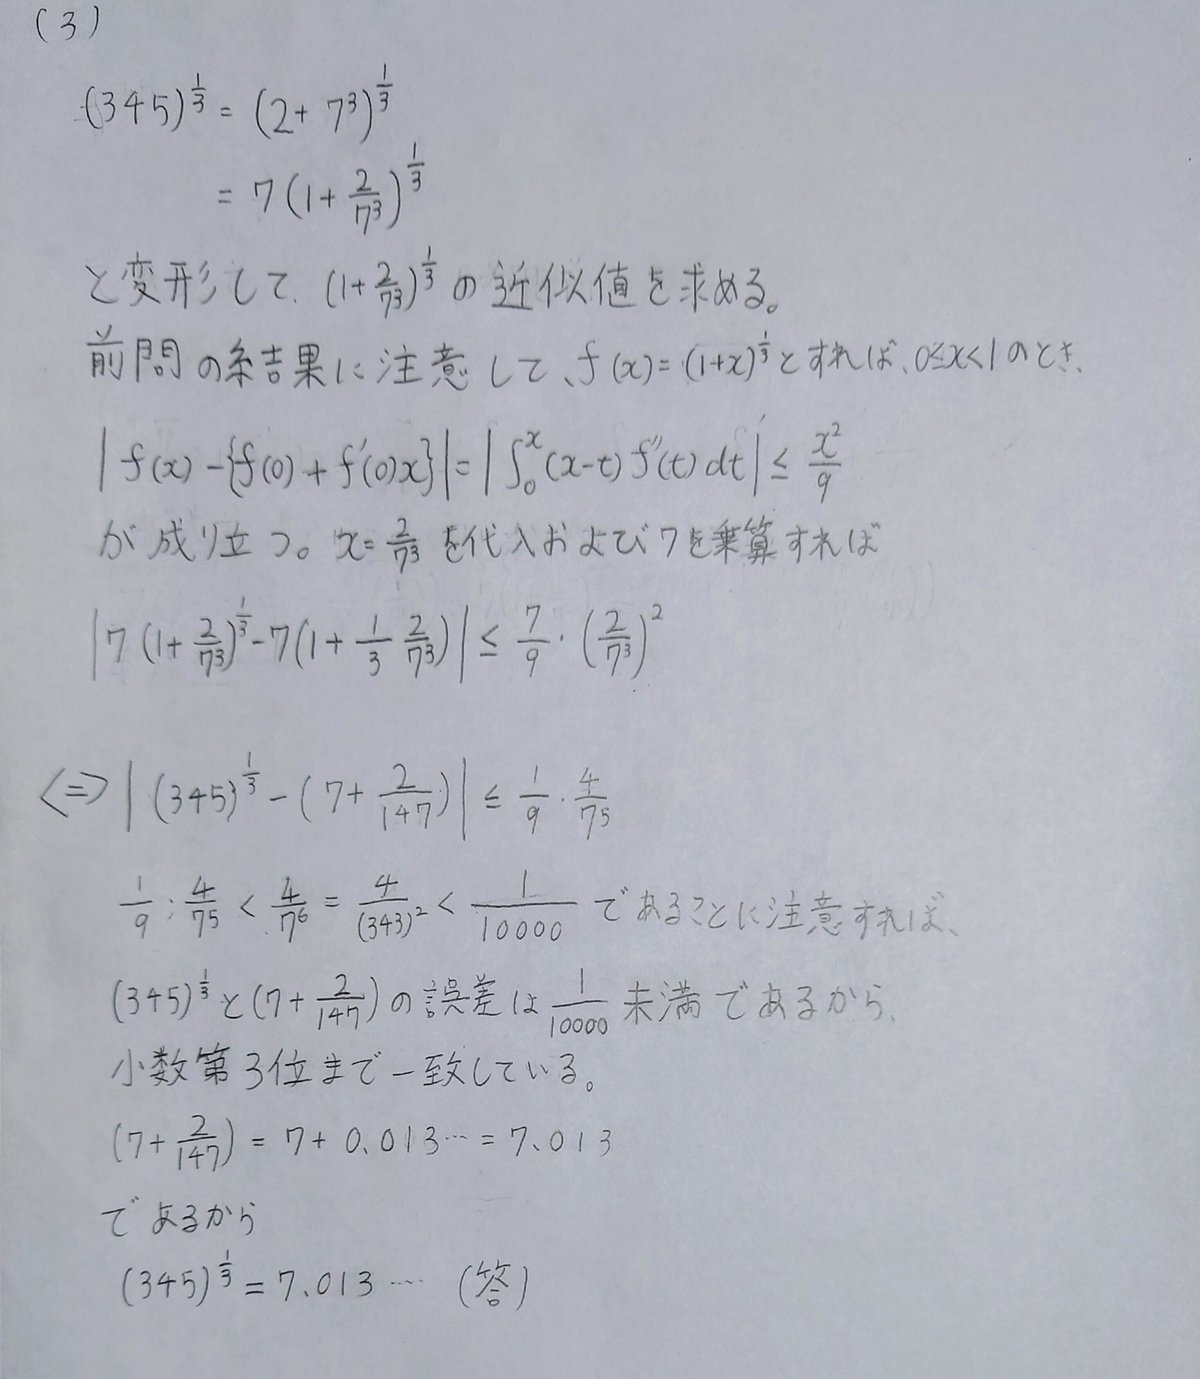 (3)
(345)^{1/3} = (2 + 7^3)^{1/3}
= 7(1 + 2/7^3)^{1/3}
と変形して、(1 + 2/7^3)^{1/3} の近似値を求める。
前問の結果に注意して、f(x) = (1+x)^{1/3} とすれば、0≤x<1のとき、
|f(x) - {f(0) + f'(0)x}| = |∫_0^x (x-t) f''(t) dt| ≤ x^2/9
が成り立つ。x = 2/7^3 を代入および7を乗算すれば
|7(1 + 2/7^3)^{1/3} - 7(1 + 1/3 2/7^3)| ≤ 7/9 · (2/7^3)^2
⇔ |(345)^{1/3} - (7 + 2/147)| ≤ 1/9 · 4/7^5
1/9 · 4/7^5 < 4/7^6 = 4/(343)^2 < 1/10000 であることに注意すれば、
(345)^{1/3} と (7 + 2/147) の誤差は 1/10000 未満であるから、
小数第3位まで一致している。
(7 + 2/147) = 7 + 0.013… = 7.013
であるから
(345)^{1/3} = 7.013 … (答)